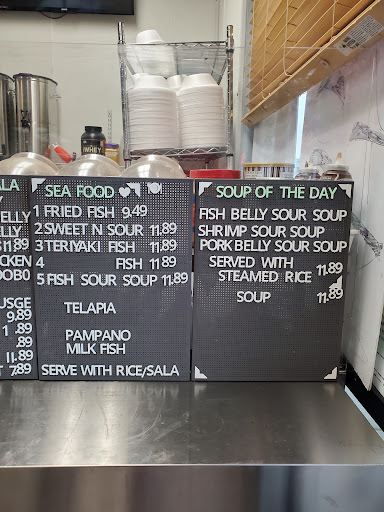 ALA
Y
ELLY
ELLY
11.89
CKEN
DOBO
USGE
9.89
1 .89
.89
11.89
T 7.89
SEA FOOD
1 FRIED FISH 9.49
2 SWEET N SOUR 11.89
3 TERIYAKI FISH 11.89
4 FISH 11.89
5 FISH SOUR SOUP 11.89
TELAPIA
PAMPANO
MILK FISH
SERVE WITH RICE/SALA
SOUP OF THE DAY
FISH BELLY SOUR SOUP
SHRIMP SOUR SOUP
PORK BELLY SOUR SOUP
SERVED WITH
STEAMED RICE 11.89
SOUP 11.89
WHEY